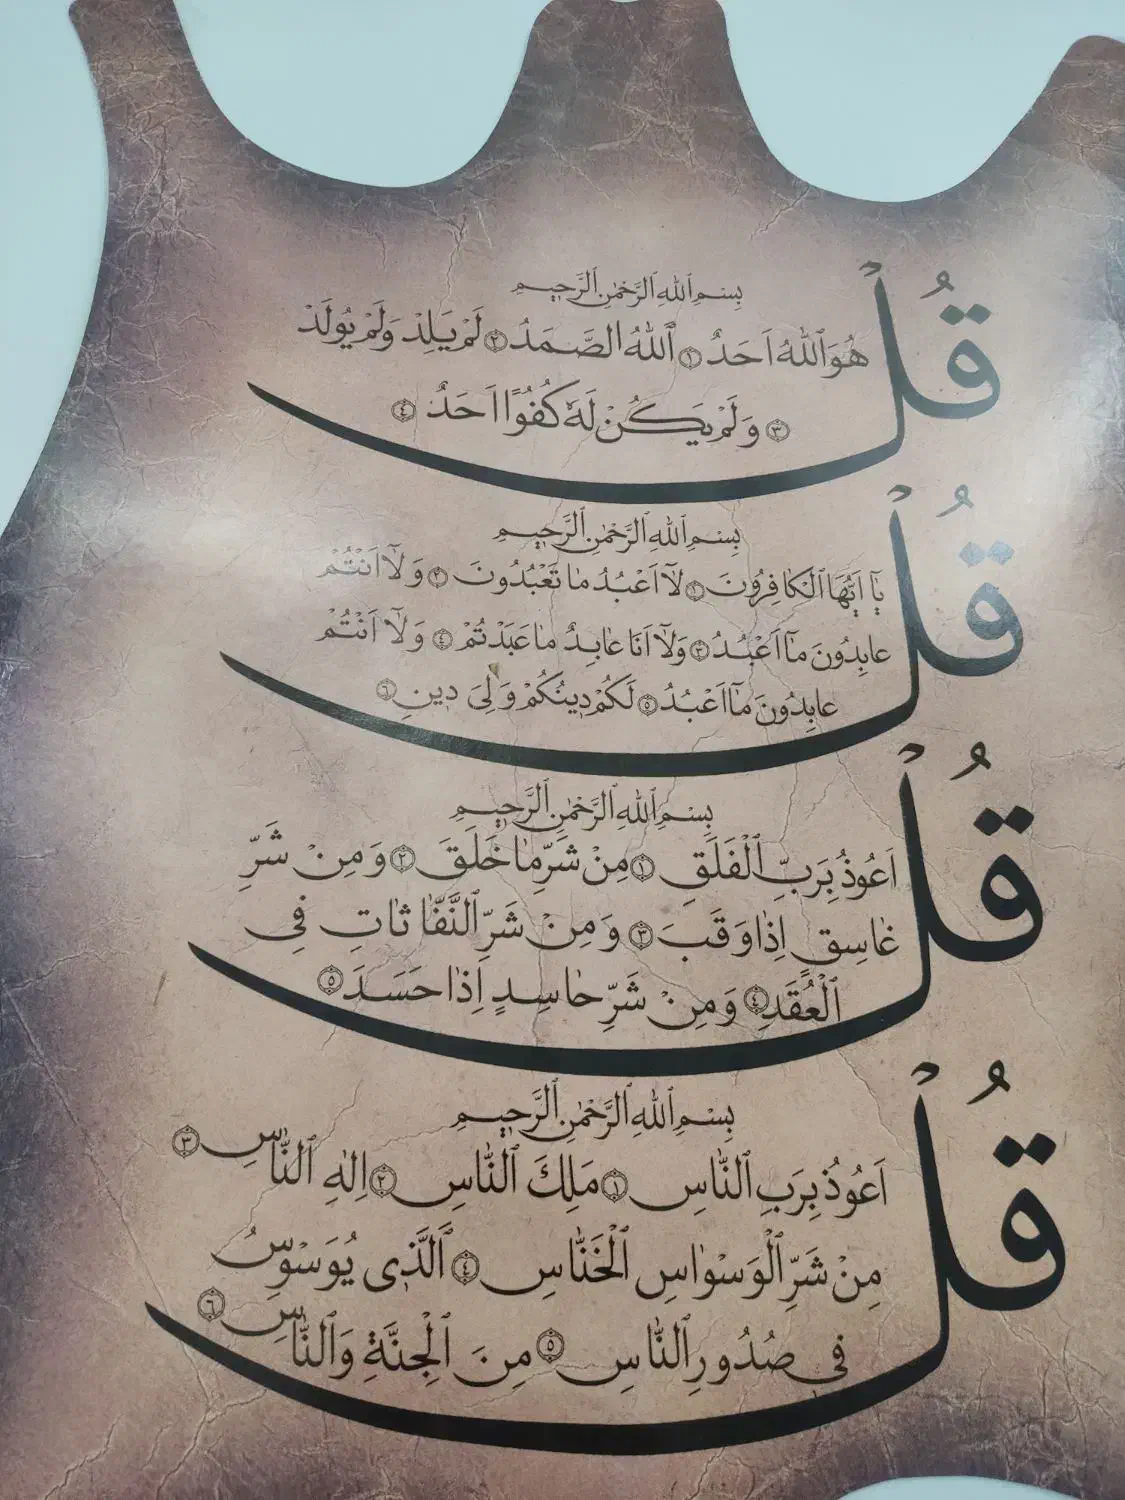 بِسْمِ ٱللهِ ٱلرَّحْمٰنِ ٱلرَّحِيمِ
قُلْ هُوَ ٱللهُ اَحَدٌ ١ ٱَللهُ الصَّمَدُ ٢ لَمْ يَلِدْ وَلَمْ يُولَدْ
٣ وَلَمْ يَكُنْ لَهُ كُفُوًا اَحَدٌ ٤
بِسْمِ ٱللهِ ٱلرَّحْمٰنِ ٱلرَّحِيمِ
قُلْ يَٓا اَيُّهَا ٱلْكَافِرُونَ ١ لَٓا اَعْبُدُ مَا تَعْبُدُونَ ٢ وَلَٓا اَنْتُمْ
عَابِدُونَ مَٓا اَعْبُدُ ٣ وَلَٓا اَنَا عَابِدٌ مَا عَبَدْتُمْ ٤ وَلَٓا اَنْتُمْ
عَابِدُونَ مَٓا اَعْبُدُ ٥ لَكُمْ دِينُكُمْ وَلِىَ دِينِ ٦
بِسْمِ ٱللهِ ٱلرَّحْمٰنِ ٱلرَّحِيمِ
قُلْ اَعُوذُ بِرَبِّ ٱلْفَلَقِ ١ مِنْ شَرِّ مَا خَلَقَ ٢ وَ مِنْ شَرِّ
غَاسِقٍ اِذَا وَقَبَ ٣ وَ مِنْ شَرِّ ٱلنَّفَّاثَاتِ فِى
ٱلْعُقَدِ ٤ وَ مِنْ شَرِّ حَاسِدٍ اِذَا حَسَدَ ٥
بِسْمِ ٱللهِ ٱلرَّحْمٰنِ ٱلرَّحِيمِ
قُلْ اَعُوذُ بِرَبِ ٱلنَّاسِ ١ مَلِكَ ٱلنَّاسِ ٢ اِلٰهِ ٱلنَّاسِ ٣
مِنْ شَرِّ ٱلْوَسْوَاسِ ٱلْخَنَّاسِ ٤ ٱَلَّذِى يُوَسْوِسُ
فِى صُدُورِ ٱلنَّاسِ ٥ مِنَ ٱلْجِنَّةِ وَٱلنَّاسِ ٦